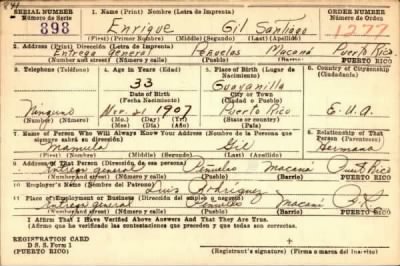 SERIAL NUMBER 1. Name (Print) Nombre (Letra de Imprenta) ORDER NUMBER
Número de Serie Número de Orden
898 Enrique Gil Santiago 1277
(First) (Primer Nombre) (Middle) (Segundo) (Last) (Apellido)
2. Address (Print) Dirección (Letra de Imprenta)
Entrega general Peñuelas Macaná Puerto Rico
(Number and street) (Número y calle) (Pueblo) (Barrio) PUERTO RICO
3. Telephone 4. Age in Years 5. Place of Birth (Lugar de 6. Country of Citizenship
(Teléfono) (Edad) Nacimiento) (Ciudadanía)
33 Guayanilla
Date of Birth City or Town
(Fecha Nacimiento) (Ciudad o Pueblo)
Ninguno Mar. 21 1907 Puerto Rico E.U.A.
(Number) (Número) (Mo.) (Day) (Yr.) (State or country)
(Mes) (Día) (Año) (Estado o país)
7. Name of Person Who Will Always Know Your Address (Nombre de la Persona que 8. Relationship of That
siempre sabrá su dirección) Person (Parentesco)
Manuela Gil Hermana
(First) (Primer Nombre) (Middle) (Segundo) (Last) (Apellido)
9. Address of That Person (Dirección de esa persona)
Entrega general Peñuelas Macaná Puerto Rico
(Number and street) (Número y Calle) (Pueblo) (Barrio) PUERTO RICO
10. Employer's Name (Nombre del Patrono)
Luis Rodriguez
11. Place of Employment or Business (Dirección del empleo o negocio)
Entrega general Peñuelas Macaná P.R.
(Number and street) (Número y Calle) (Pueblo) (Barrio) PUERTO RICO
I Affirm That I Have Verified Above Answers And That They Are True.
(Afirmo que he verificado las contestaciones que preceden y que todas son correctas.
REGISTRATION CARD
D. S. S. Form 1
(PUERTO RICO) (Registrant's signature) (Firma o marca del Inscrito)